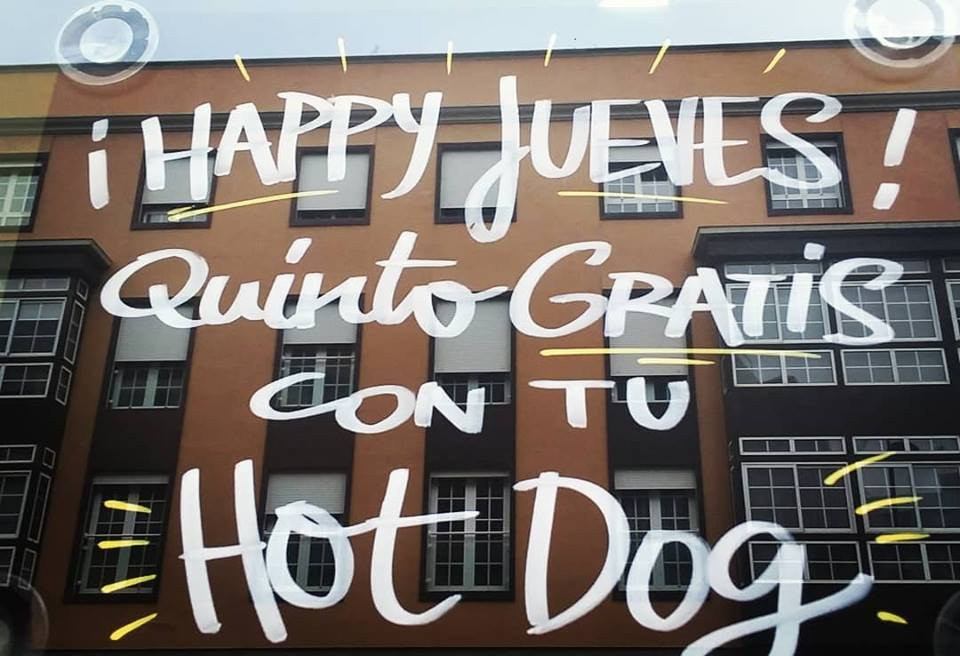 ¡HAPPY JUEVES!
Quinto GRATIS
CON TU
HOt Dog